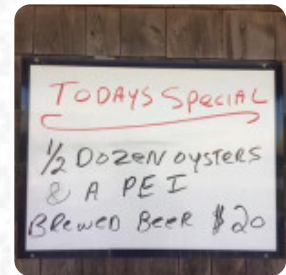 TODAYS SpecIAL
1/2 DOZEN OYSTERS
& A PEI
BRewed BeeR $20